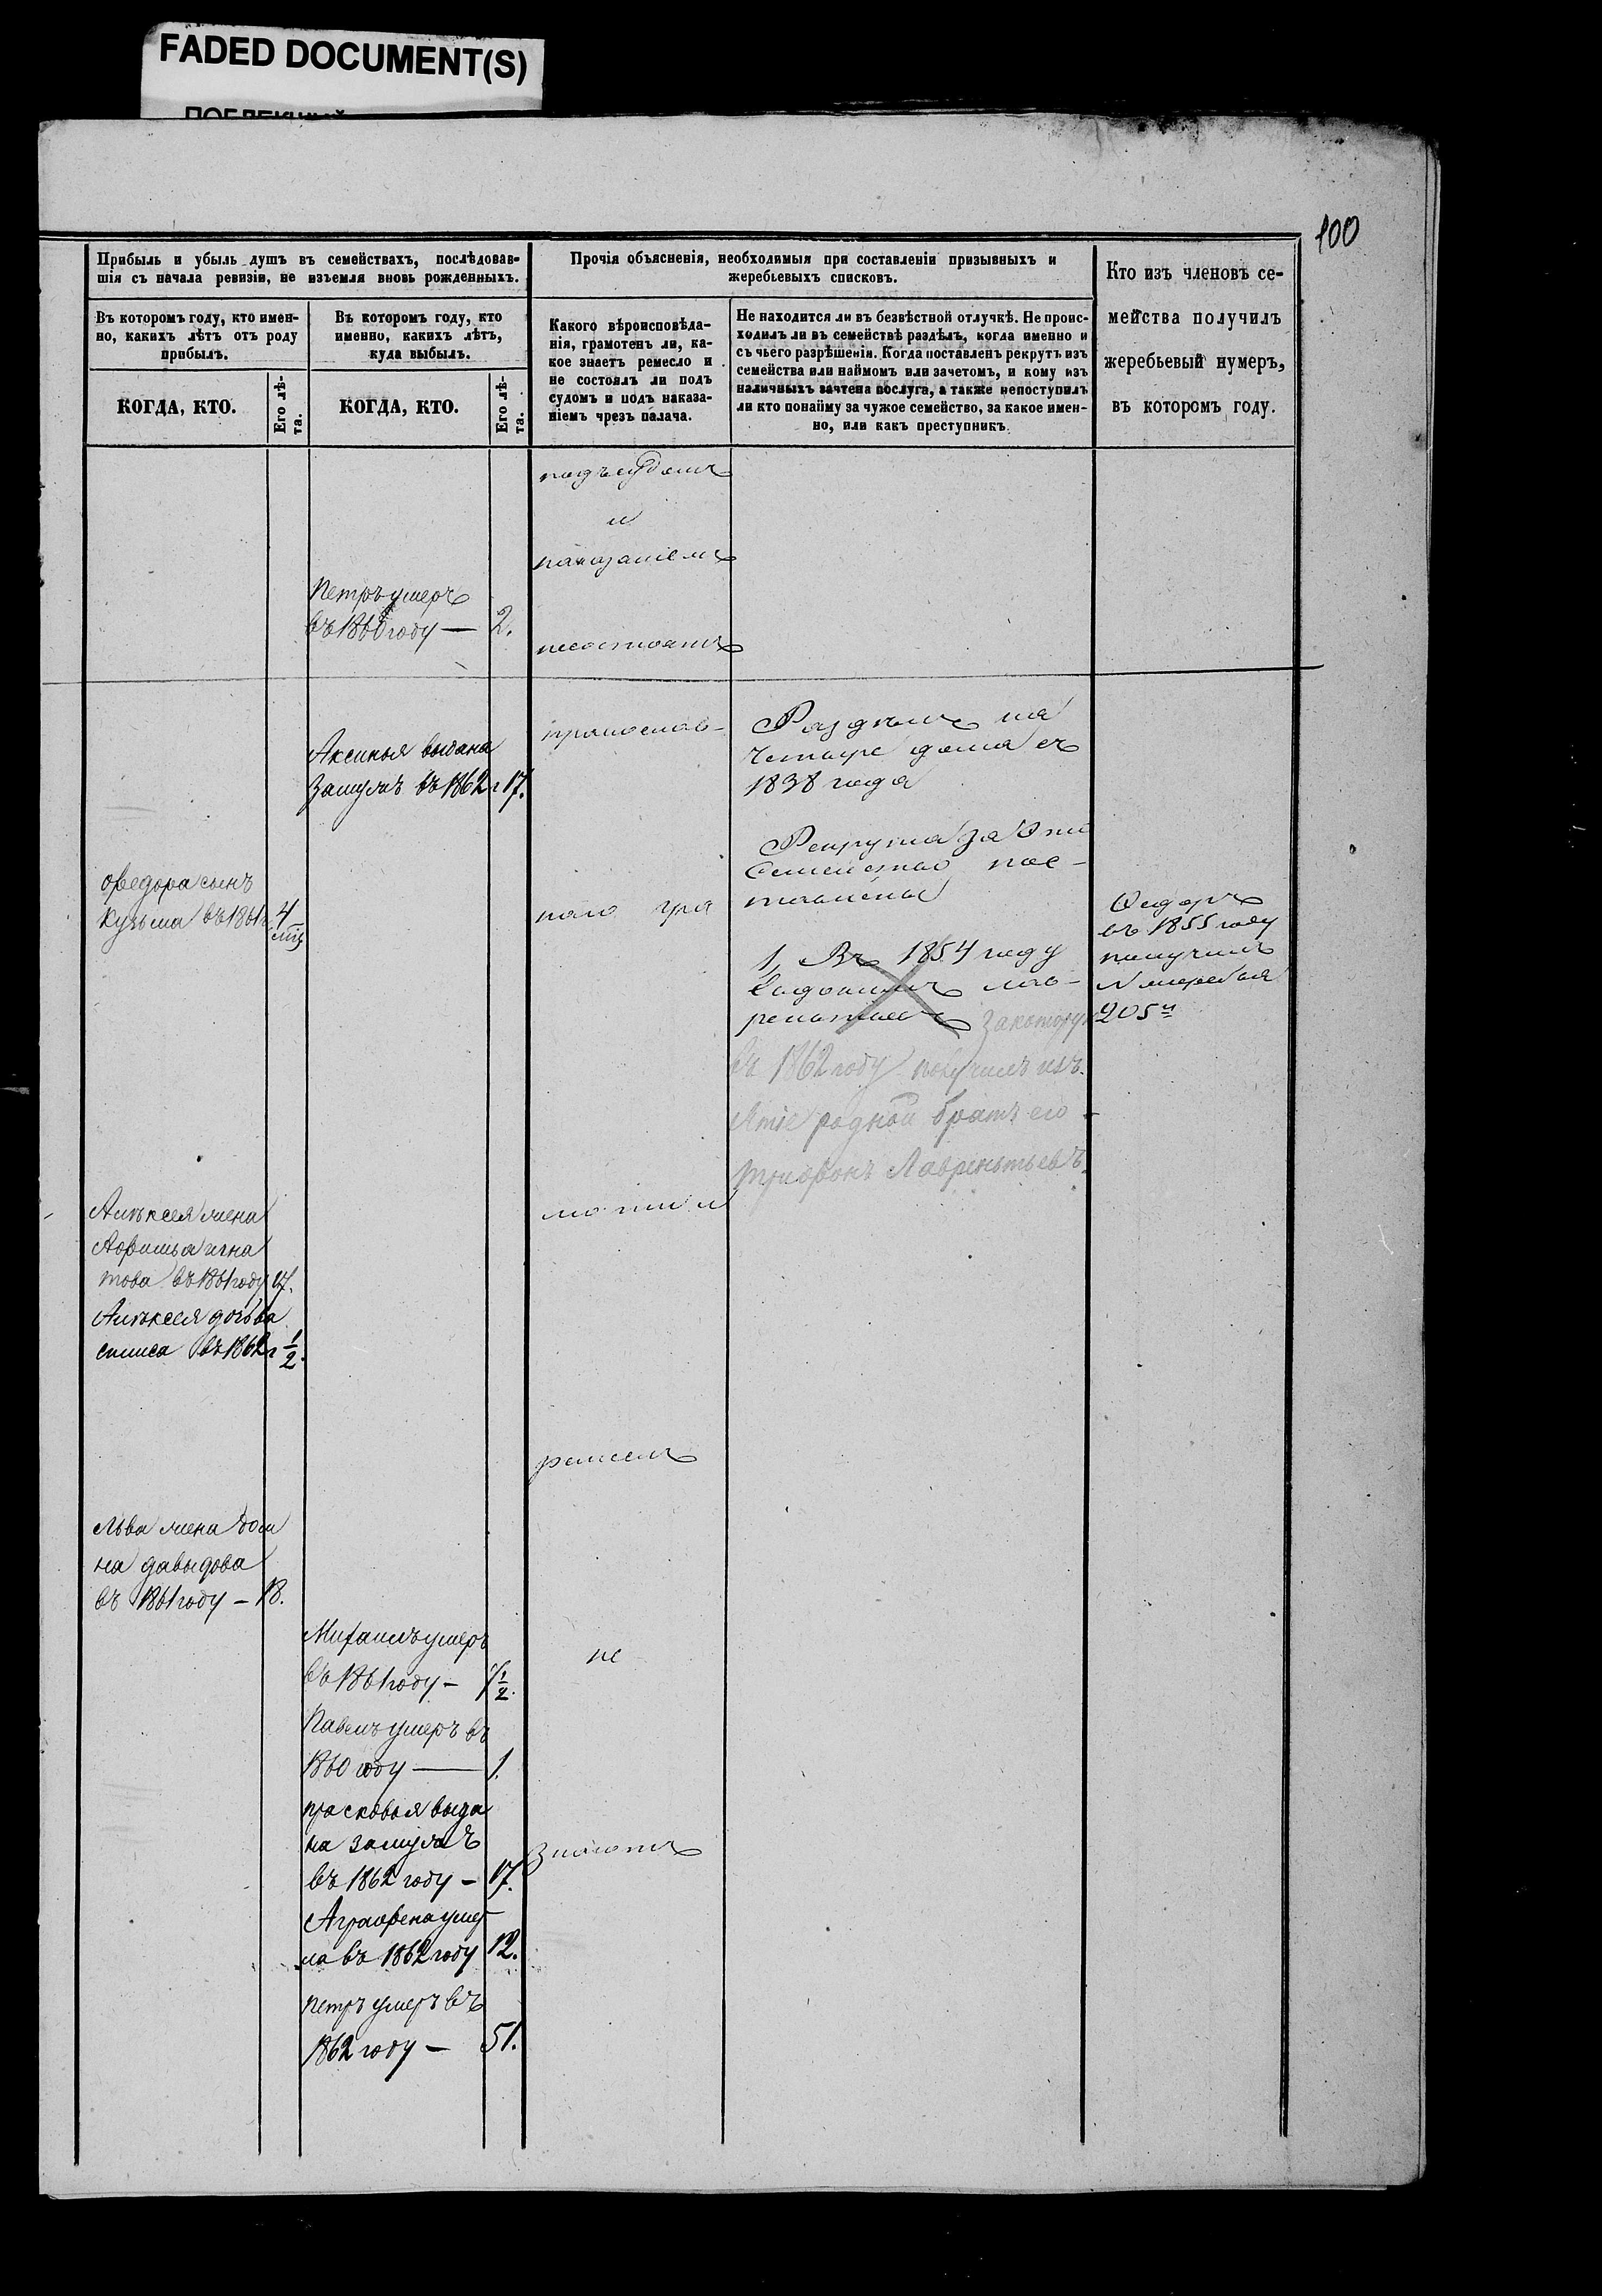 FADED DOCUMENT(S)
100
Прибыль и убыль душъ въ семействахъ, послѣдовав-
шія съ начала ревизіи, не изъемля вновь рожденныхъ.
Прочія объясненія, необходимыя при составленіи призывныхъ и
жеребьевыхъ списковъ.
Кто изъ членовъ се-
мейства получилъ
жеребьевый нумеръ,
въ которомъ году.
Въ которомъ году, кто имен-
но, какихъ лѣтъ отъ роду
прибылъ.
Въ которомъ году, кто
именно, какихъ лѣтъ,
куда выбылъ.
Какого вѣроисповѣда-
нія, грамотенъ ли, ка-
кое знаетъ ремесло и
не состоялъ ли подъ
судомъ и подъ наказа-
ніемъ чрезъ палача.
Не находится ли въ безвѣстной отлучкѣ. Не проис-
ходилъ ли въ семействѣ раздѣлъ, когда именно и
съ чьего разрѣшенія. Когда поставленъ рекрутъ изъ
семейства или наймомъ или зачетомъ, и кому изъ
наличныхъ зачтена послуга, а также непоступилъ
ли кто понайму за чужое семейство, за какое имен-
но, или какъ преступникъ.
КОГДА, КТО.
Его лѣ-
та.
КОГДА, КТО.
Его лѣ-
та.
подъ судомъ
и
наказаніемъ
Петръ умеръ
въ 1860 году — 2.
несостоятъ
Аксинья выдана
замужъ въ 1862 г 17.
православ-
Раздѣлъ на
четыре дома съ
1838 года
Рекрута за это
семейство пос-
тавлены
Федора сынъ
Кузьма въ 1861 г 4
мц
наго гра
1, Въ 1854 году
лав-
рентьевъ закоторую
въ 1862 году получилъ изъ-
ятіе родной братъ его
Трифонъ Лаврентьевъ.
Федоръ
въ 1855 году
получилъ
№ жеребья
205й
Алексея жена
Афимья игна
това въ 1861 году 17.
Алексея дочь ва
силиса въ 1862 г 1/2.
моти и
ремеслъ
Льва жена дом
на давыдова
въ 1861 году — 18.
Михаилъ умеръ
въ 1861 году — 1/2.
не
Павелъ умеръ въ
1860 году — 1.
прасковья выда
на замужъ
въ 1862 году — 17.
знаютъ
Аграфена умер
ла въ 1862 году 12.
петръ умеръ въ
1862 году — 51.